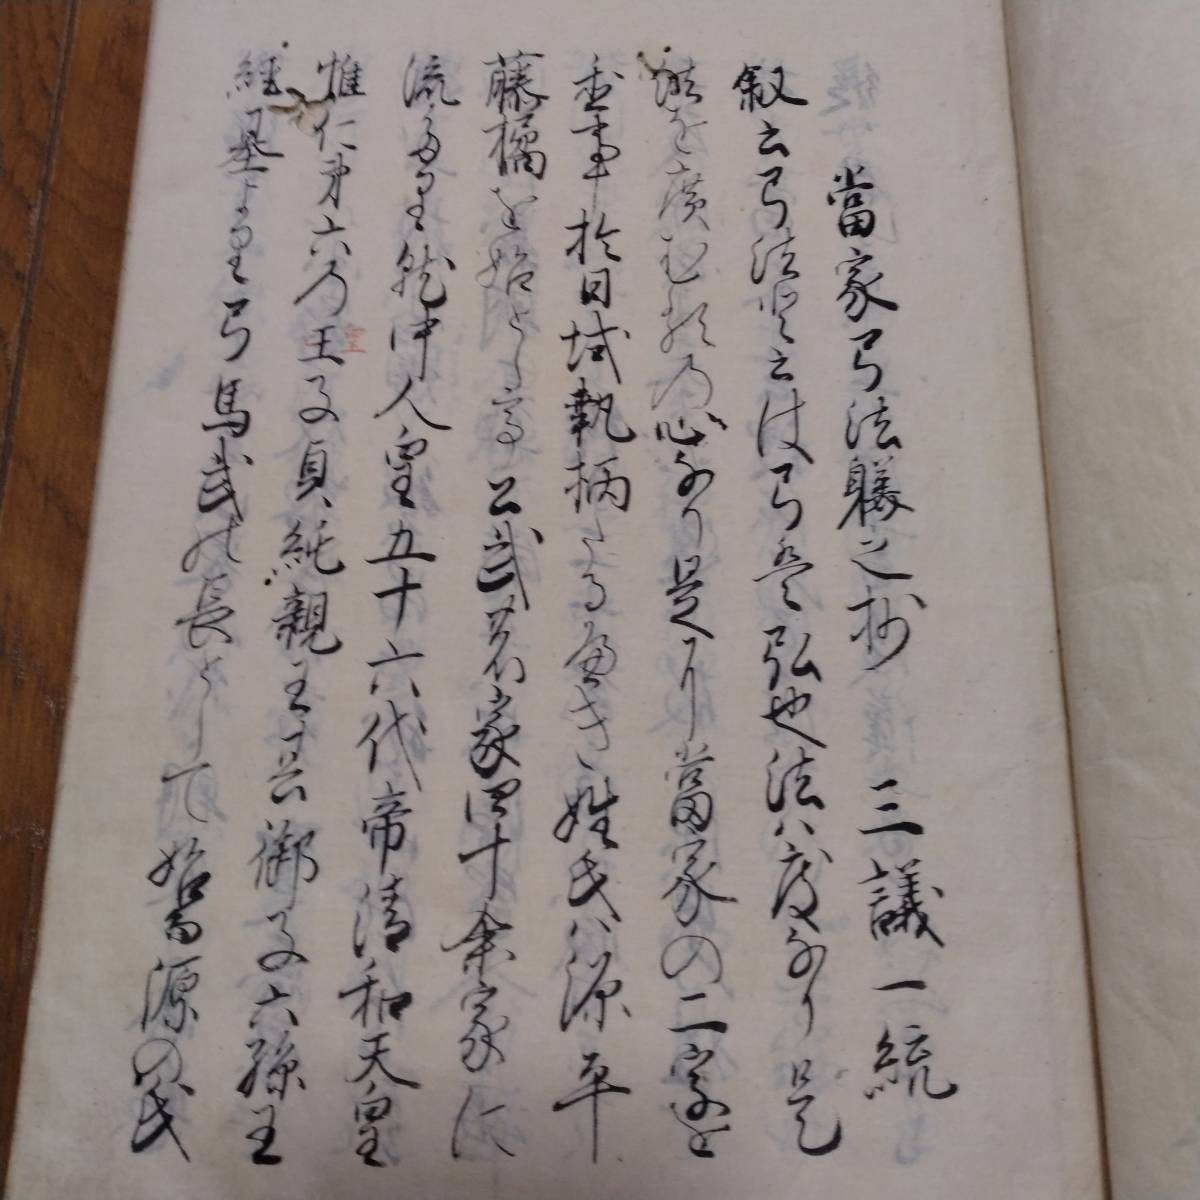 當家弓法躾之抄 三議一統
叙云弓法と云は弓と弘也法ハ度なり是
を廣むるの心なり是に當家の二字を
事於日域執柄たるへき姓氏ハ源平
藤橘を始として公武の家四十余家に
流たり就中人皇五十六代帝清和天皇
惟仁第六乃王子貞純親王其御子六孫王
皇
經基より弓馬武の長として始留源の氏